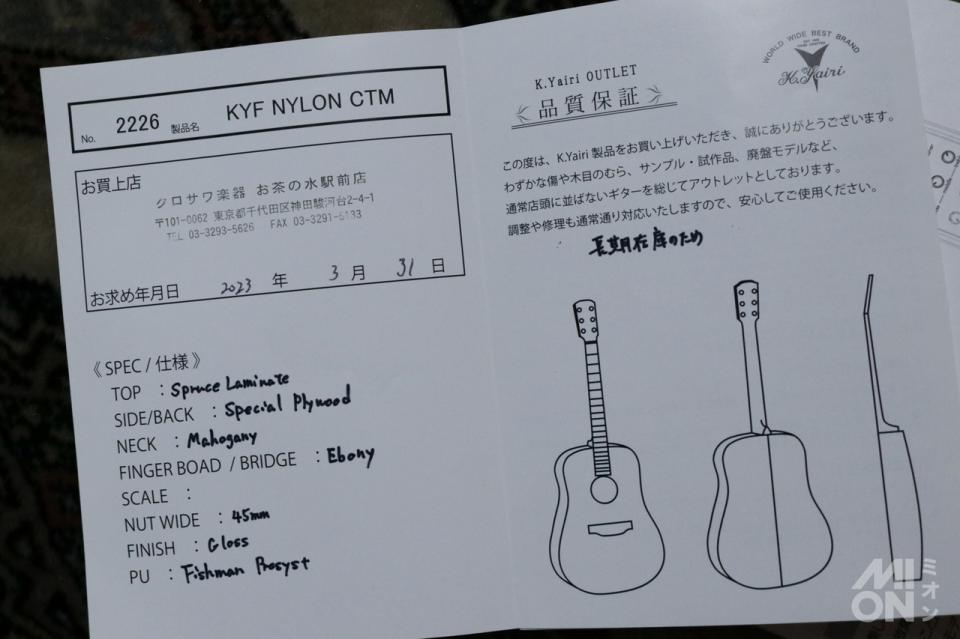 No. 2226 製品名 KYF NYLON CTM
お買上店
クロサワ楽器 お茶の水駅前店
〒101-0062 東京都千代田区神田駿河台2-4-1
TEL 03-3293-5626 FAX 03-3291-5133
お求め年月日 2023 年 3 月 31 日
《 SPEC / 仕様 》
TOP : Spruce Laminate
SIDE/BACK : Special Plywood
NECK : Mahogany
FINGER BOAD / BRIDGE : Ebony
SCALE :
NUT WIDE : 45mm
FINISH : Gloss
PU : Fishman Prosyst
WORLD WIDE BEST BRAND
K.Yairi
K.Yairi OUTLET
品質保証
この度は、K.Yairi 製品をお買い上げいただき、誠にありがとうございます。
わずかな傷や木目のむら、サンプル・試作品、廃盤モデルなど、
通常店頭に並ばないギターを総じてアウトレットとしております。
調整や修理も通常通り対応いたしますので、安心してご使用ください。
長期在庫のため
MION
ミオン